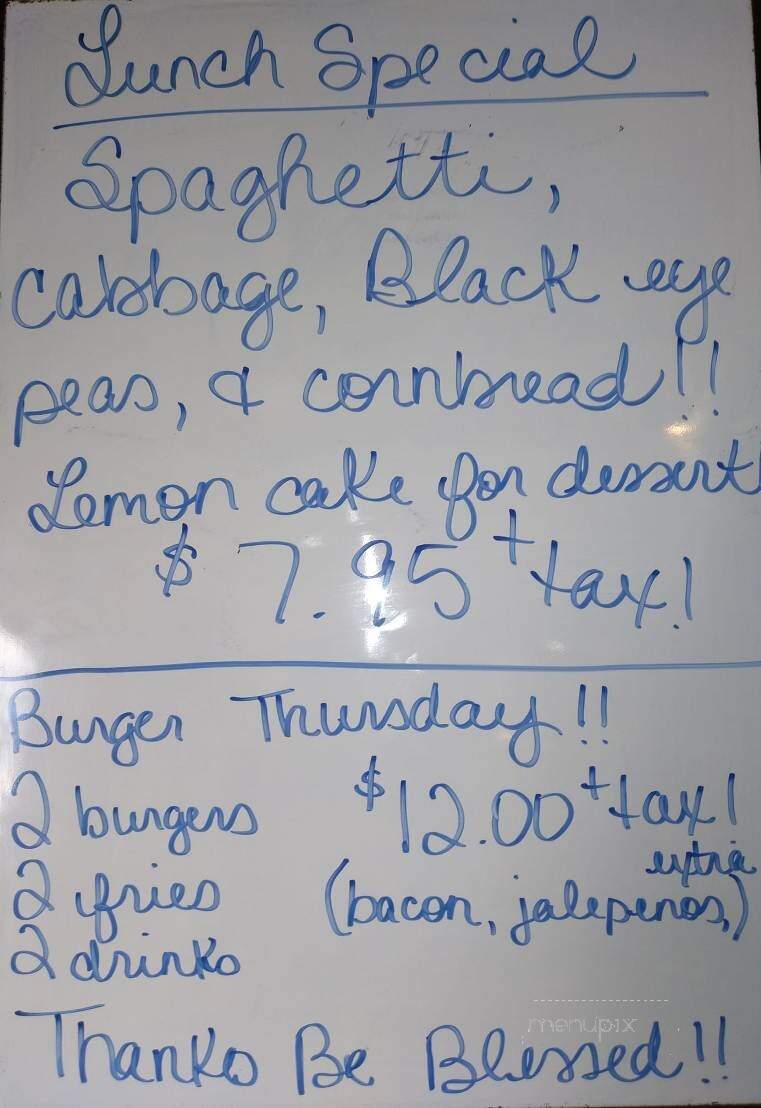 Lunch Special
Spaghetti,
cabbage, Black eye
peas, & cornbread!!
Lemon cake for dessert
$7.95 + tax!
Burger Thursday!!
2 burgers $12.00 + tax!
extra
2 fries (bacon, jalepenos,)
2 drinks
menupix
Thanks Be Blessed!!